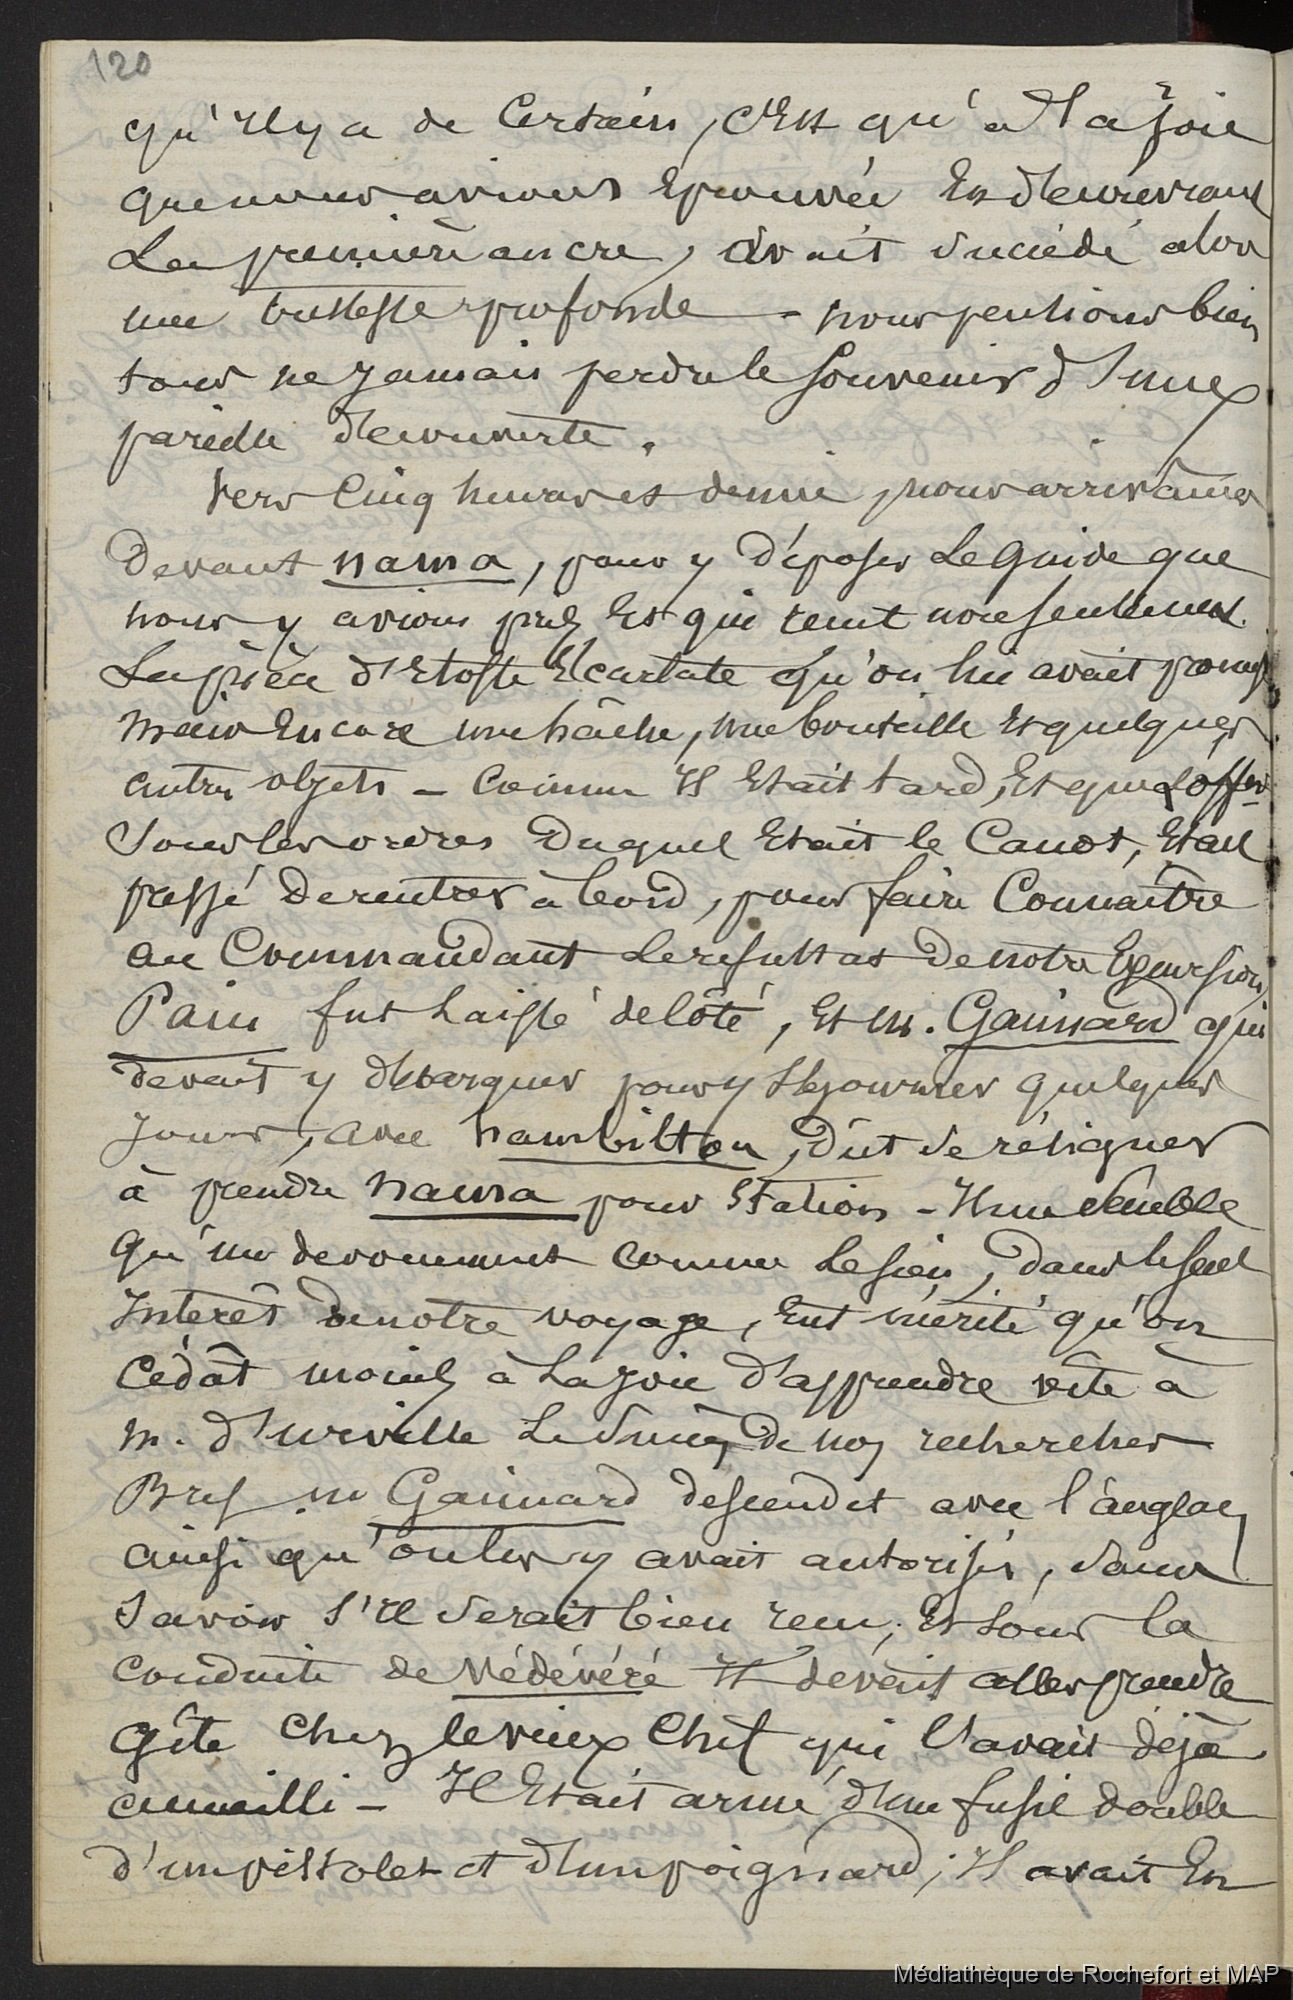 120
qu'il y a de Certain, c'Est qu'à la joie
que nous avions Eprouvée En découvrant
La première ancre, avait succédé alors
une tristesse profonde - nous pensions bien
tous ne jamais perdre le souvenir d'une
pareille découverte.
Vers Cinq heures et demie, nous arrivâmes
Devant nama, pour y déposer Le Guide que
nous y avions pris Et qui reçut non seulement
La pièce d'Etoffe Ecarlate qu'on lui avait promise
mais Encore une hâche, une bouteille Et quelques
autres objets - Comme Il Etait tard, Et que l'offer
sous les ordres Duquel Etait le Canot, Etait
pressé De rentrer à bord, pour faire Connaître
au Commandant Le résultat De notre Excursion,
Païou fut Laissé de côté, Et M. Gaimard qui
devait y débarquer pour y séjourner quelques
Jours, avec hambilton, dût se résigner
à prendre nama pour station - Il me semble
qu'un dévouement comme Le sien, dans le seul
Intérêt De notre voyage, Eut mérité qu'on
Cédât moins à La joie d'apprendre vite à
M. d'urville Le succès de nos recherches
Bref M Gaimard descendit avec l'anglais
ainsi qu'on les y avait autorisés, sans
savoir s'Il serait bien reçu; Et sous la
conduite de Védévéré Il devait aller prendre
Gîte Chez le vieux Chef qui l'avait déjà
accueilli - Il Etait armé d'un fusil double
d'un pistolet et d'un poignard; Il avait En
Médiathèque de Rochefort et MAP